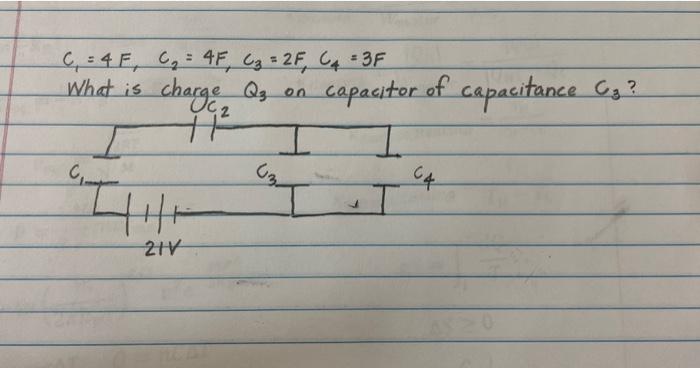 C₁ = 4F, C₂ = 4F, C₃ = 2F, C₄ = 3F
What is charge Q₃ on capacitor of capacitance C₃?
C₂
C₁ C₃ C₄
21V